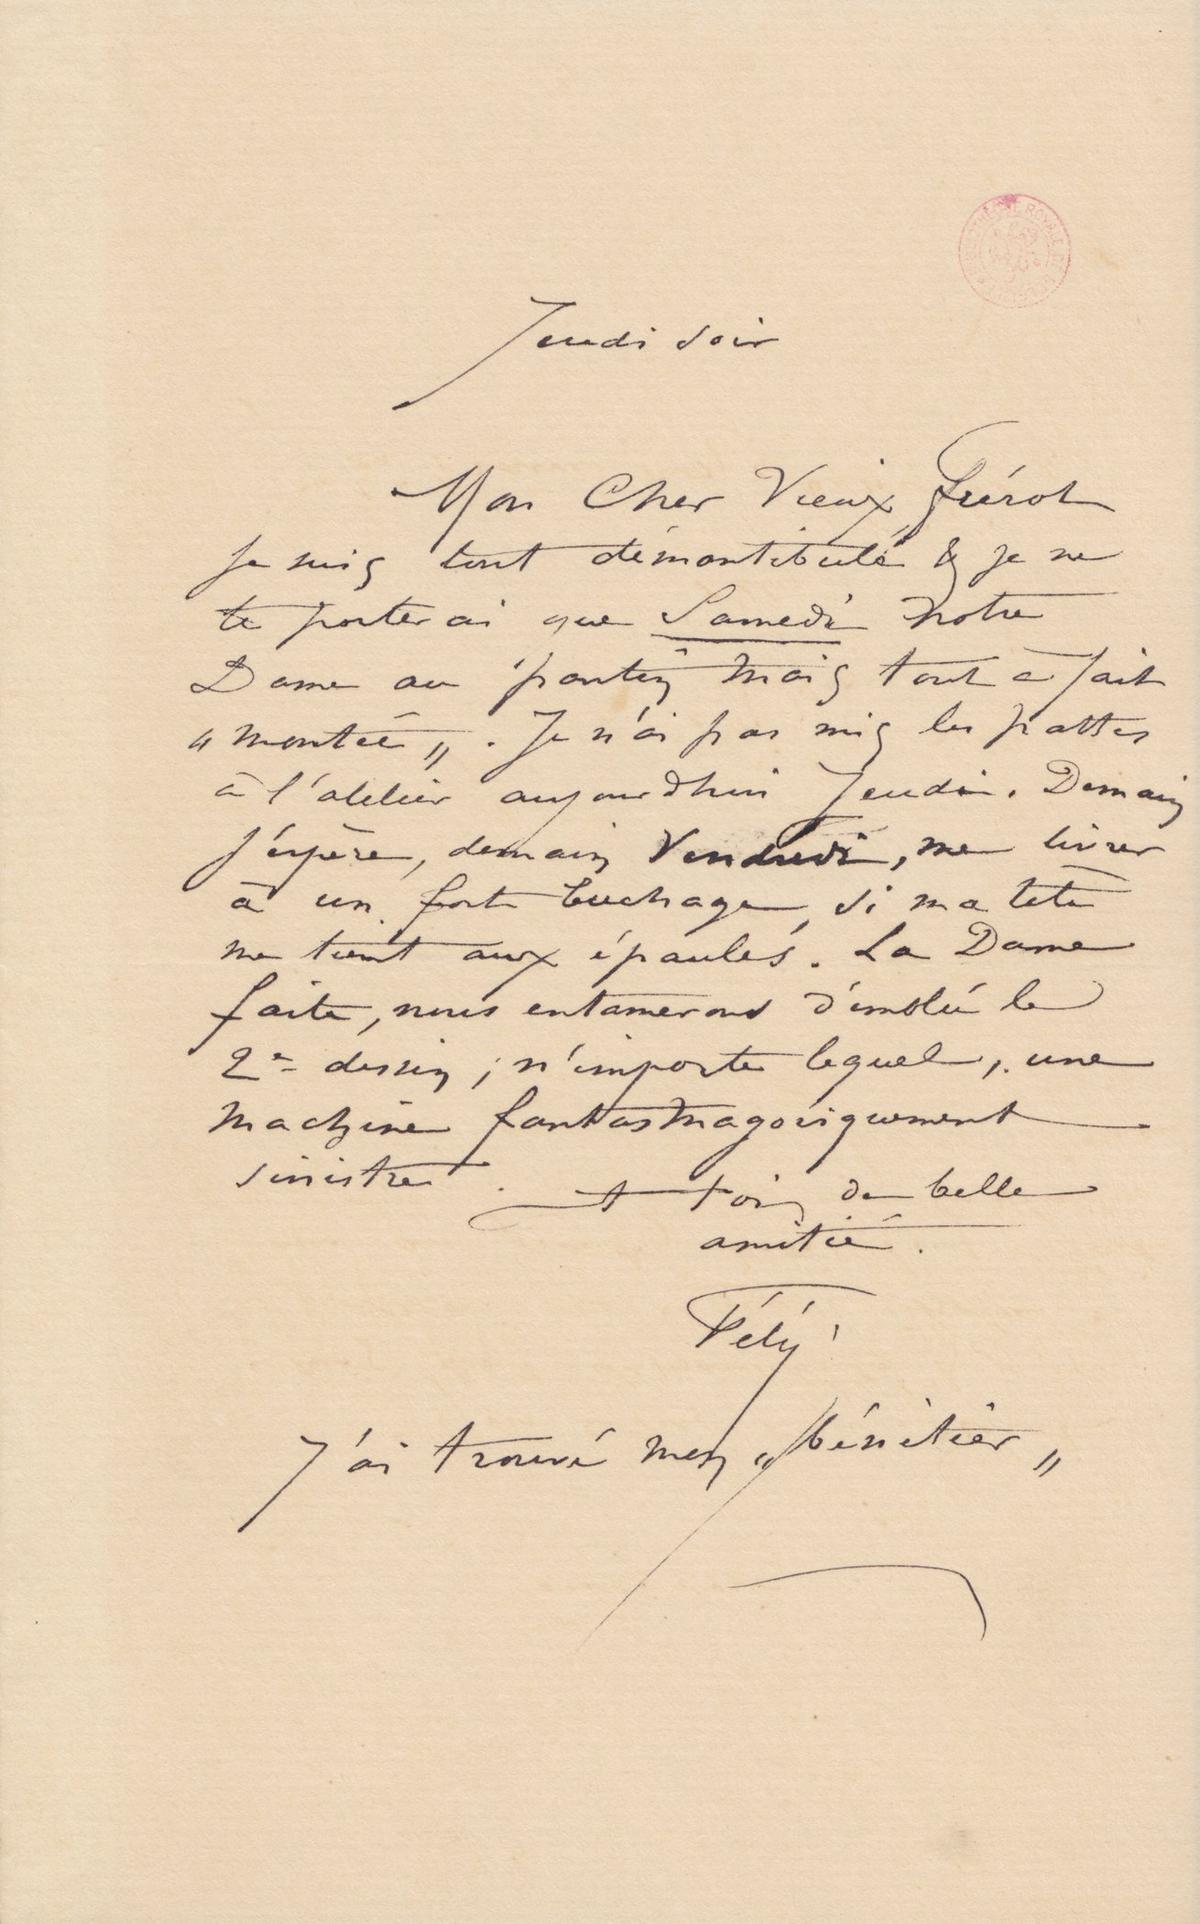 Jeudi soir
Mon Cher Vieux Frérot
Je suis tout démantibulé & je ne
te porterai que Samedi Notre
Dame au pantin mais tout à fait
« montée » . Je n'ai pas mis les pattes
à l'atelier aujourdhui Jeudi. Demain
j'éspère, demain Vendredi, me livrer
à un fort buchage, si ma tête
me tient aux épaules. La Dame
faite, nous entamerons d'emblée le
2e dessin ; n'importe lequel, une
machine fantasmagoriquement
sinistre .
A toi, de belle
amitié .
Fély
J'ai trouvé mon « bénitier »